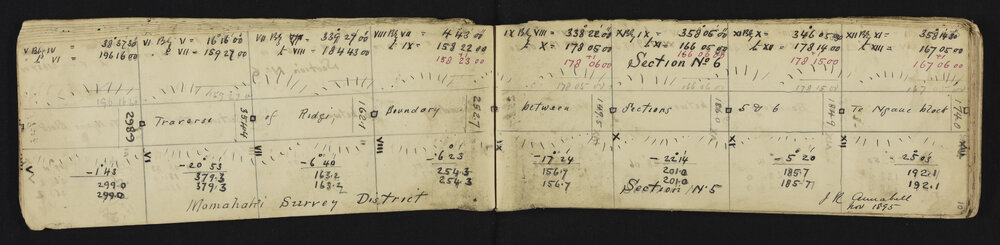 V Bkg IV = 38°37'30 VI Bkg V = 16°16'00 VII Bkg VI = 339 27 00 VIII Bkg VII = 4 43 00 IX Bkg VIII = 338 22 00 X Bkg IX = 358 05 00 XI Bkg X = 346 05 XII Bkg XI = 358 14 00
t VI = 196 16 00 t VII = 159 27 00 t VIII = 184 43 00 t IX = 158 22 00 t X = 178 05 00 t XI = 166 05 00 t XII = 178 14 00 t XIII = 167 05 00
+1 +1 +1
158 23 00 178 06 00 166 06 00 178 15 00 167 06 00
Section No 6
2986.2 Traverse 3544 of Ridge, 1221 Boundary 2527 between 1495 Sections 1860 5 & 6 1849 To Ngaue block 1740
V VII VIII IX X XI XII XIII
-1°43 -20°53 -6°40 -6 23 -17°24 -22 14 -5°20 -25°05
299.0 379.3 163.2 254.3 156.7 201.0 185.7 192.1
299.0 379.3 163.2 254.3 156.7 201.0 185.7 192.1
Momahaki Survey District
Section No 5
J R Annabell
Nov 1895